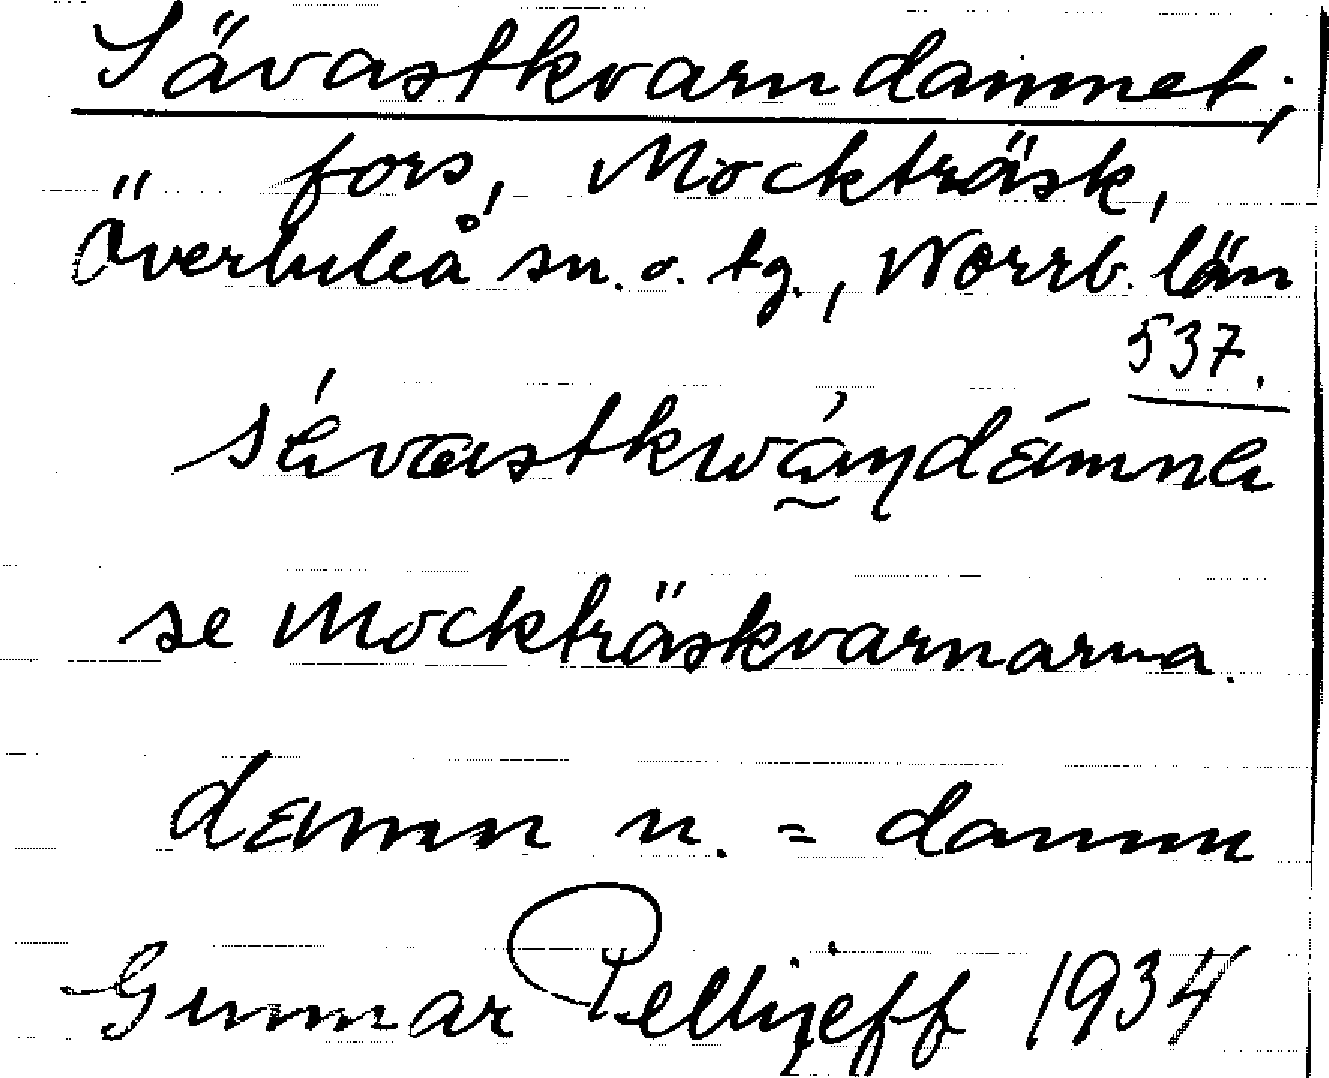 Sävastkvarndammet;
fors, Mockträsk,
Överluleå sn. o. tg., Norrb. län
537.
se Mockträskkvarnarna.
n. = damm
Gunnar Pellijeff 1934